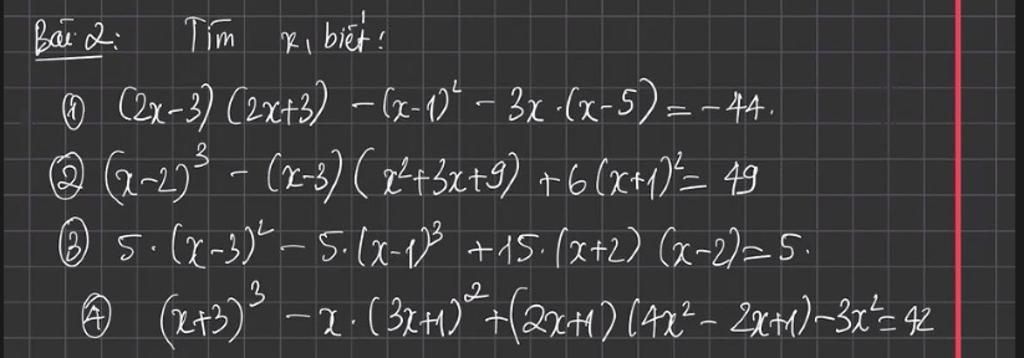 Bài 2: Tìm x, biết:
① (2x-3)(2x+3) - (x-1)² - 3x.(x-5) = -44.
② (x-2)³ - (x-3)(x²+3x+9) + 6(x+1)² = 49
③ 5.(x-3)² - 5.(x-1)³ + 15.(x+2)(x-2) = 5.
④ (x+3)³ - x.(3x+1)² + (2x+1)(4x² - 2x+1) - 3x² = 42